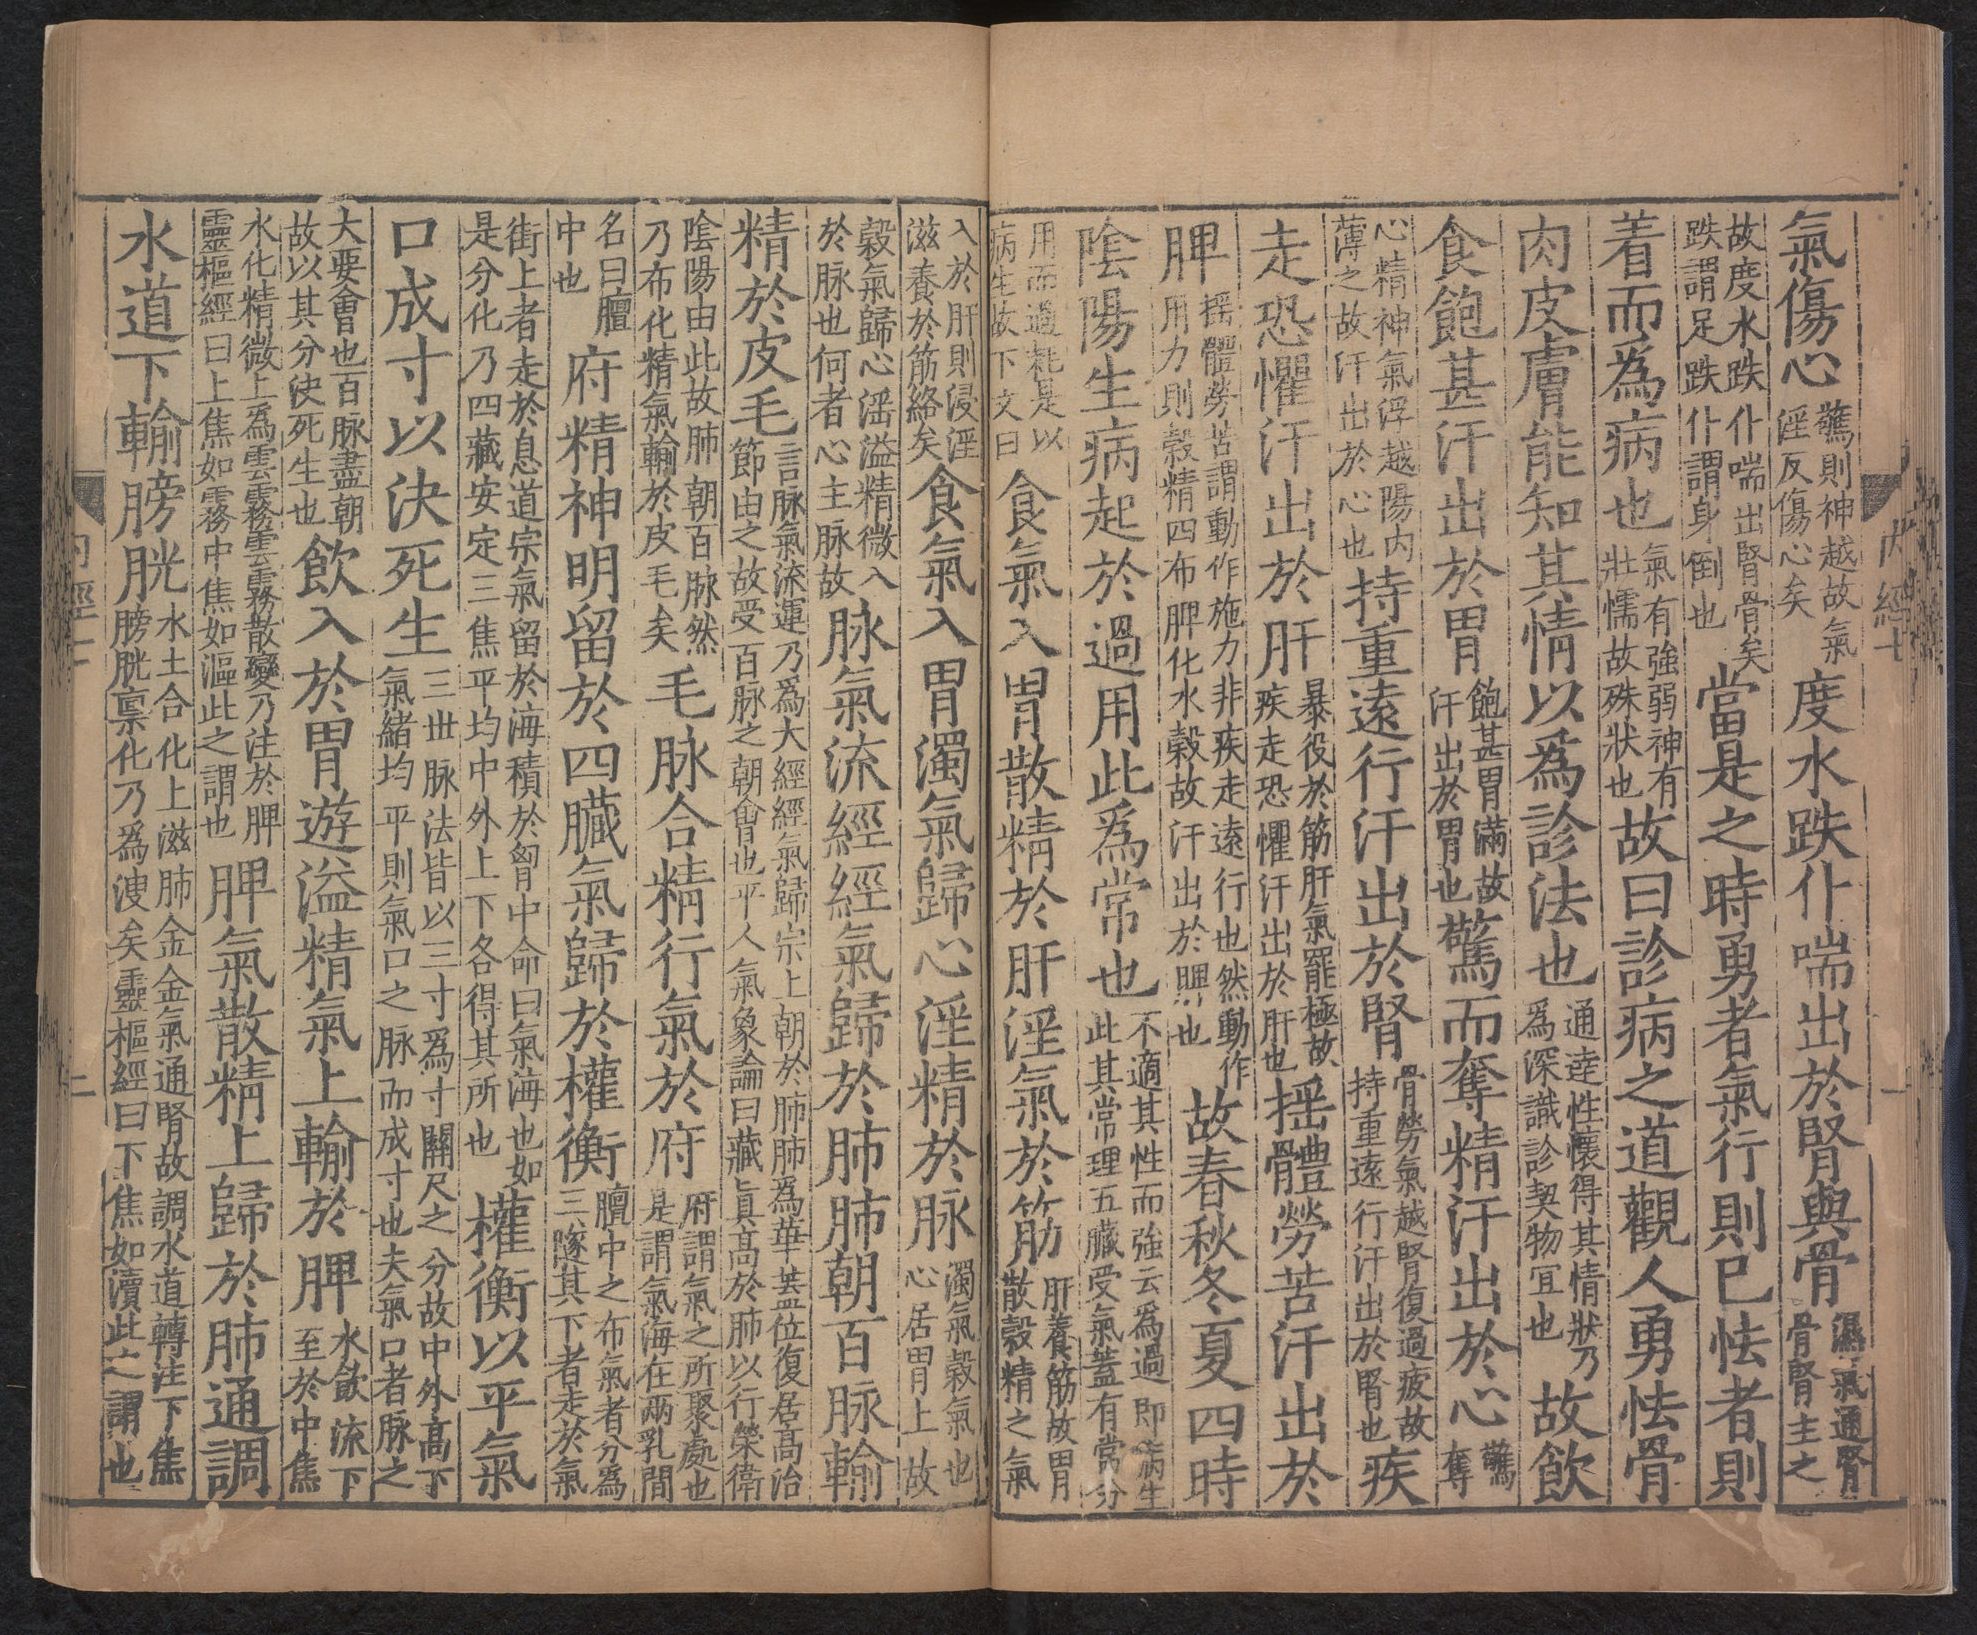 氣傷心驚則神越故氣淫反傷心矣度水跌仆喘出於腎與骨濕氣通腎骨腎主之
故度水跌仆喘出腎骨矣跌謂足跌仆謂身倒也當是之時勇者氣行則已怯者則
着而爲病也氣有強弱神有壯懦故殊狀也故曰診病之道觀人勇怯骨
肉皮膚能知其情以爲診法也通達性懷得其情狀乃爲深識診契物宜也故飲
食飽甚汗出於胃飽甚胃滿故汗出於胃也驚而奪精汗出於心驚奪
心精神氣浮越陽內薄之故汗出於心也持重遠行汗出於腎骨勞氣越腎復過疲故持重遠行汗出於腎也疾
走恐懼汗出於肝暴役於筋肝氣罷極故疾走恐懼汗出於肝也揺體勞苦汗出於
脾揺體勞苦謂動作施力非疾走遠行也然動作用力則穀精四布脾化水穀故汗出於脾也故春秋冬夏四時
陰陽生病起於過用此爲常也不適其性而強云爲過即病生此其常理五臟受氣蓋有常分
用而過耗是以病生故下文曰食氣入胃散精於肝淫氣於筋肝養筋故胃散穀精之氣
入於肝則浸淫滋養於筋絡矣食氣入胃濁氣歸心淫精於脉濁氣穀氣也心居胃上故
穀氣歸心淫溢精微入於脉也何者心主脉故脉氣流經經氣歸於肺肺朝百脉輸
精於皮毛言脉氣流運乃爲大經經氣歸宗上朝於肺肺爲華蓋位復居高治節由之故受百脉之朝會也平人氣象論曰藏眞高於肺以行榮衛
陰陽由此故肺朝百脉然乃布化精氣輸於皮毛矣毛脉合精行氣於府府謂氣之所聚處也是謂氣海在兩乳間
名曰膻中也府精神明留於四臟氣歸於權衡膻中之布氣者分爲三隧其下者走於氣
街上者走於息道宗氣留於海積於胷中命曰氣海也如是分化乃四藏安定三焦平均中外上下各得其所也權衡以平氣
口成寸以決死生三世脉法皆以三寸爲寸關尺之分故中外高下氣緒均平則氣口之脉而成寸也夫氣口者脉之
大要會也百脉盡朝故以其分決死生也飲入於胃遊溢精氣上輸於脾水飲流下至於中焦
水化精微上爲雲霧雲霧散變乃注於脾靈樞經曰上焦如霧中焦如漚此之謂也脾氣散精上歸於肺通調
水道下輸膀胱水土合化上滋肺金金氣通腎故調水道轉注下焦膀胱禀化乃爲溲矣靈樞經曰下焦如瀆此之謂也
内經七
一
内經七
二